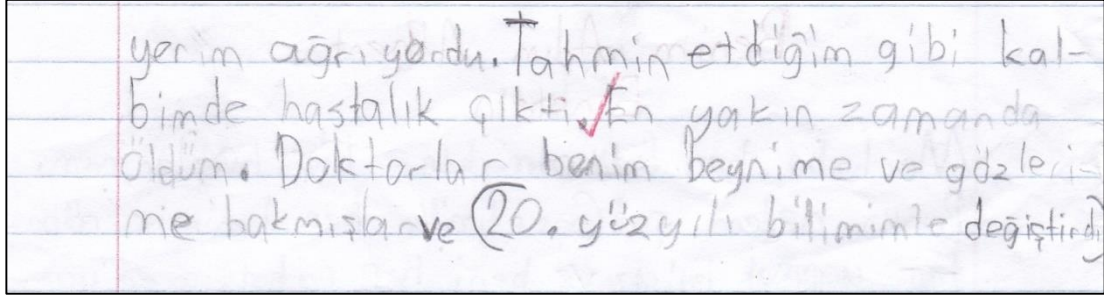 yerim ağrıyordu. Tahmin etdiğim gibi kal-
bimde hastalık çıktı. En yakın zamanda
öldüm. Doktorlar benim beynime ve gözleri-
me bakmışlar ve 20. yüzyılı bilimimle değiştirdi